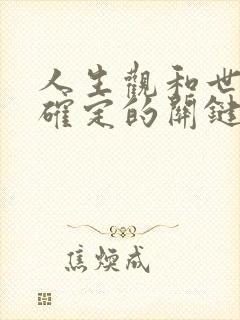 人生觀和世
確定的關鍵
焦煥成